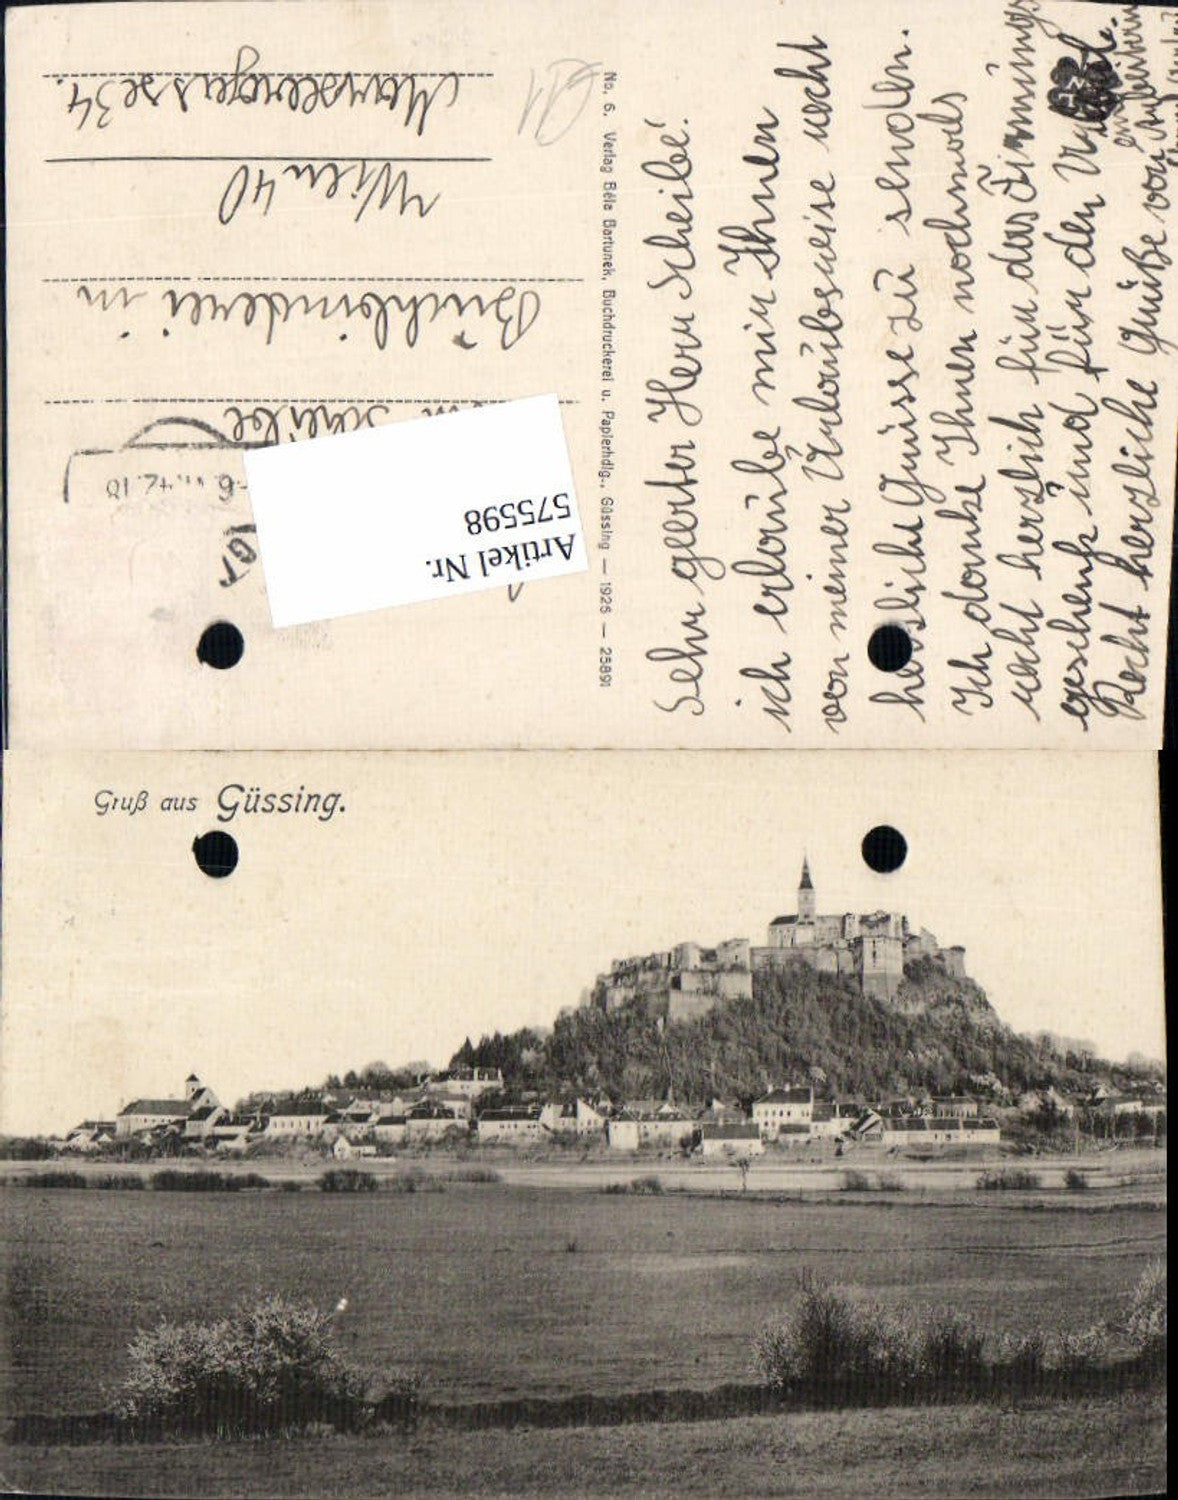 Sehr geerter Herr Scheibe!
ich erlaube mir Ihnen
von meiner Urlaubsreise recht
herzliche Grüsse zu senden.
Ich danke Ihnen nochmals
recht herzlich für das Firmungs
geschenk und für den
Recht herzliche Grüße von
No. 6. Verlag Béla Bartunek, Buchdruckerei u. Papierhdlg., Güssing — 1926 — 25891
Scheibe
Buchbinderei in
Wien 40
34.
Artikel Nr.
575598
Gruß aus Güssing.